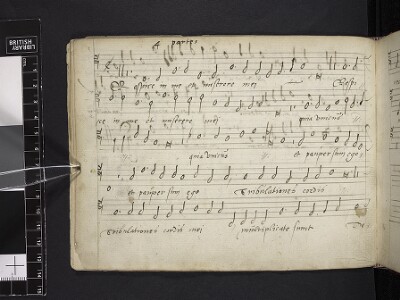 Respice in me et miserere mei Respi
ce in me et miserere mei quia unicus
quia unicus et pauper sum ego
et pauper sum ego Tribulationes cordis
Tribulationes cordis mei multiplicate sunt
BRITISH LIBRARY